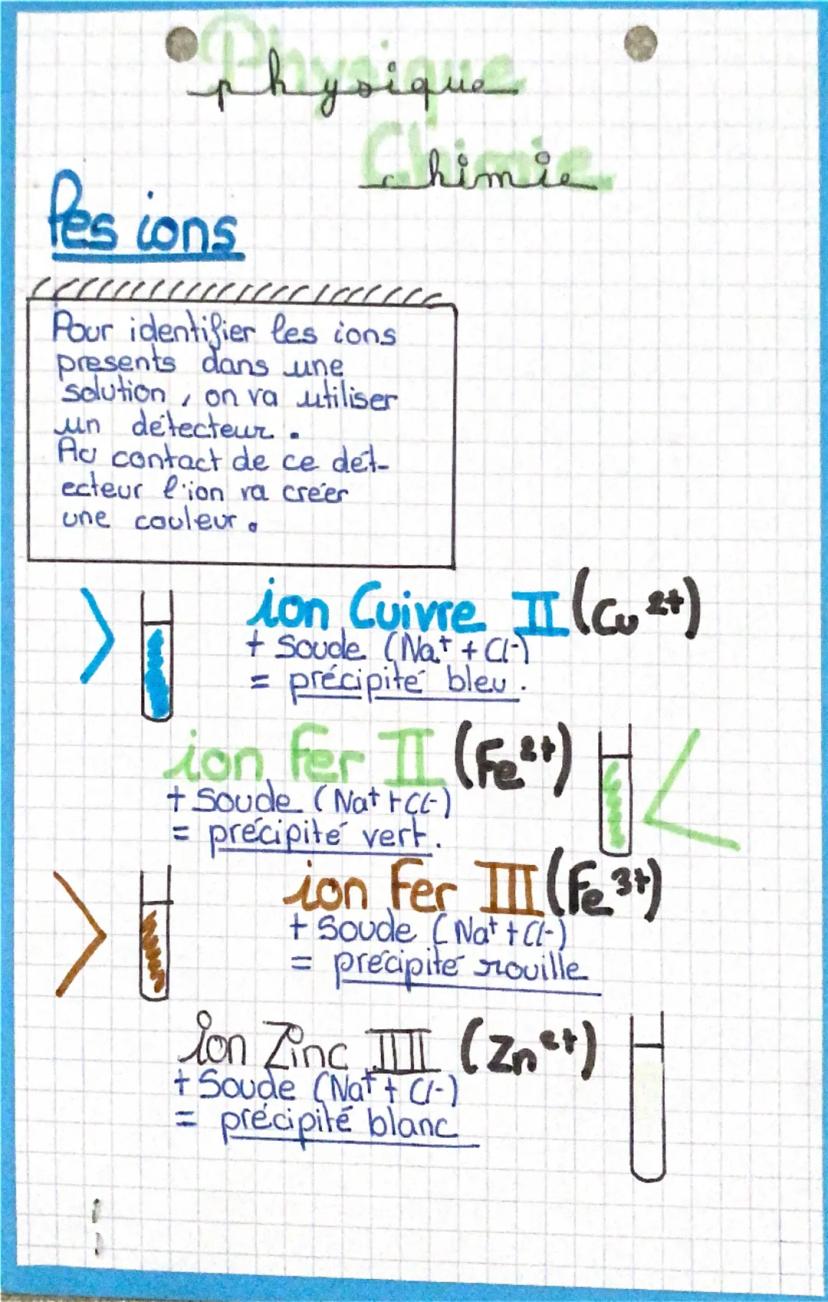 Physique
physique
Chimie
chimie
Les ions
Pour identifier les ions
presents dans une
solution, on va utiliser
un détecteur.
Au contact de ce dét-
ecteur l'ion va créer
une couleur.
ion Cuivre II (Cu²⁺)
+ Soude (Na⁺ + Cl⁻)
= précipité bleu.
ion Fer II (Fe²⁺)
+ Soude (Na⁺ + Cl⁻)
= précipité vert.
ion Fer III (Fe³⁺)
+ Soude (Na⁺ + Cl⁻)
= précipité rouille
ion Zinc IIII (Zn²⁺)
+ Soude (Na⁺ + Cl⁻)
= précipité blanc